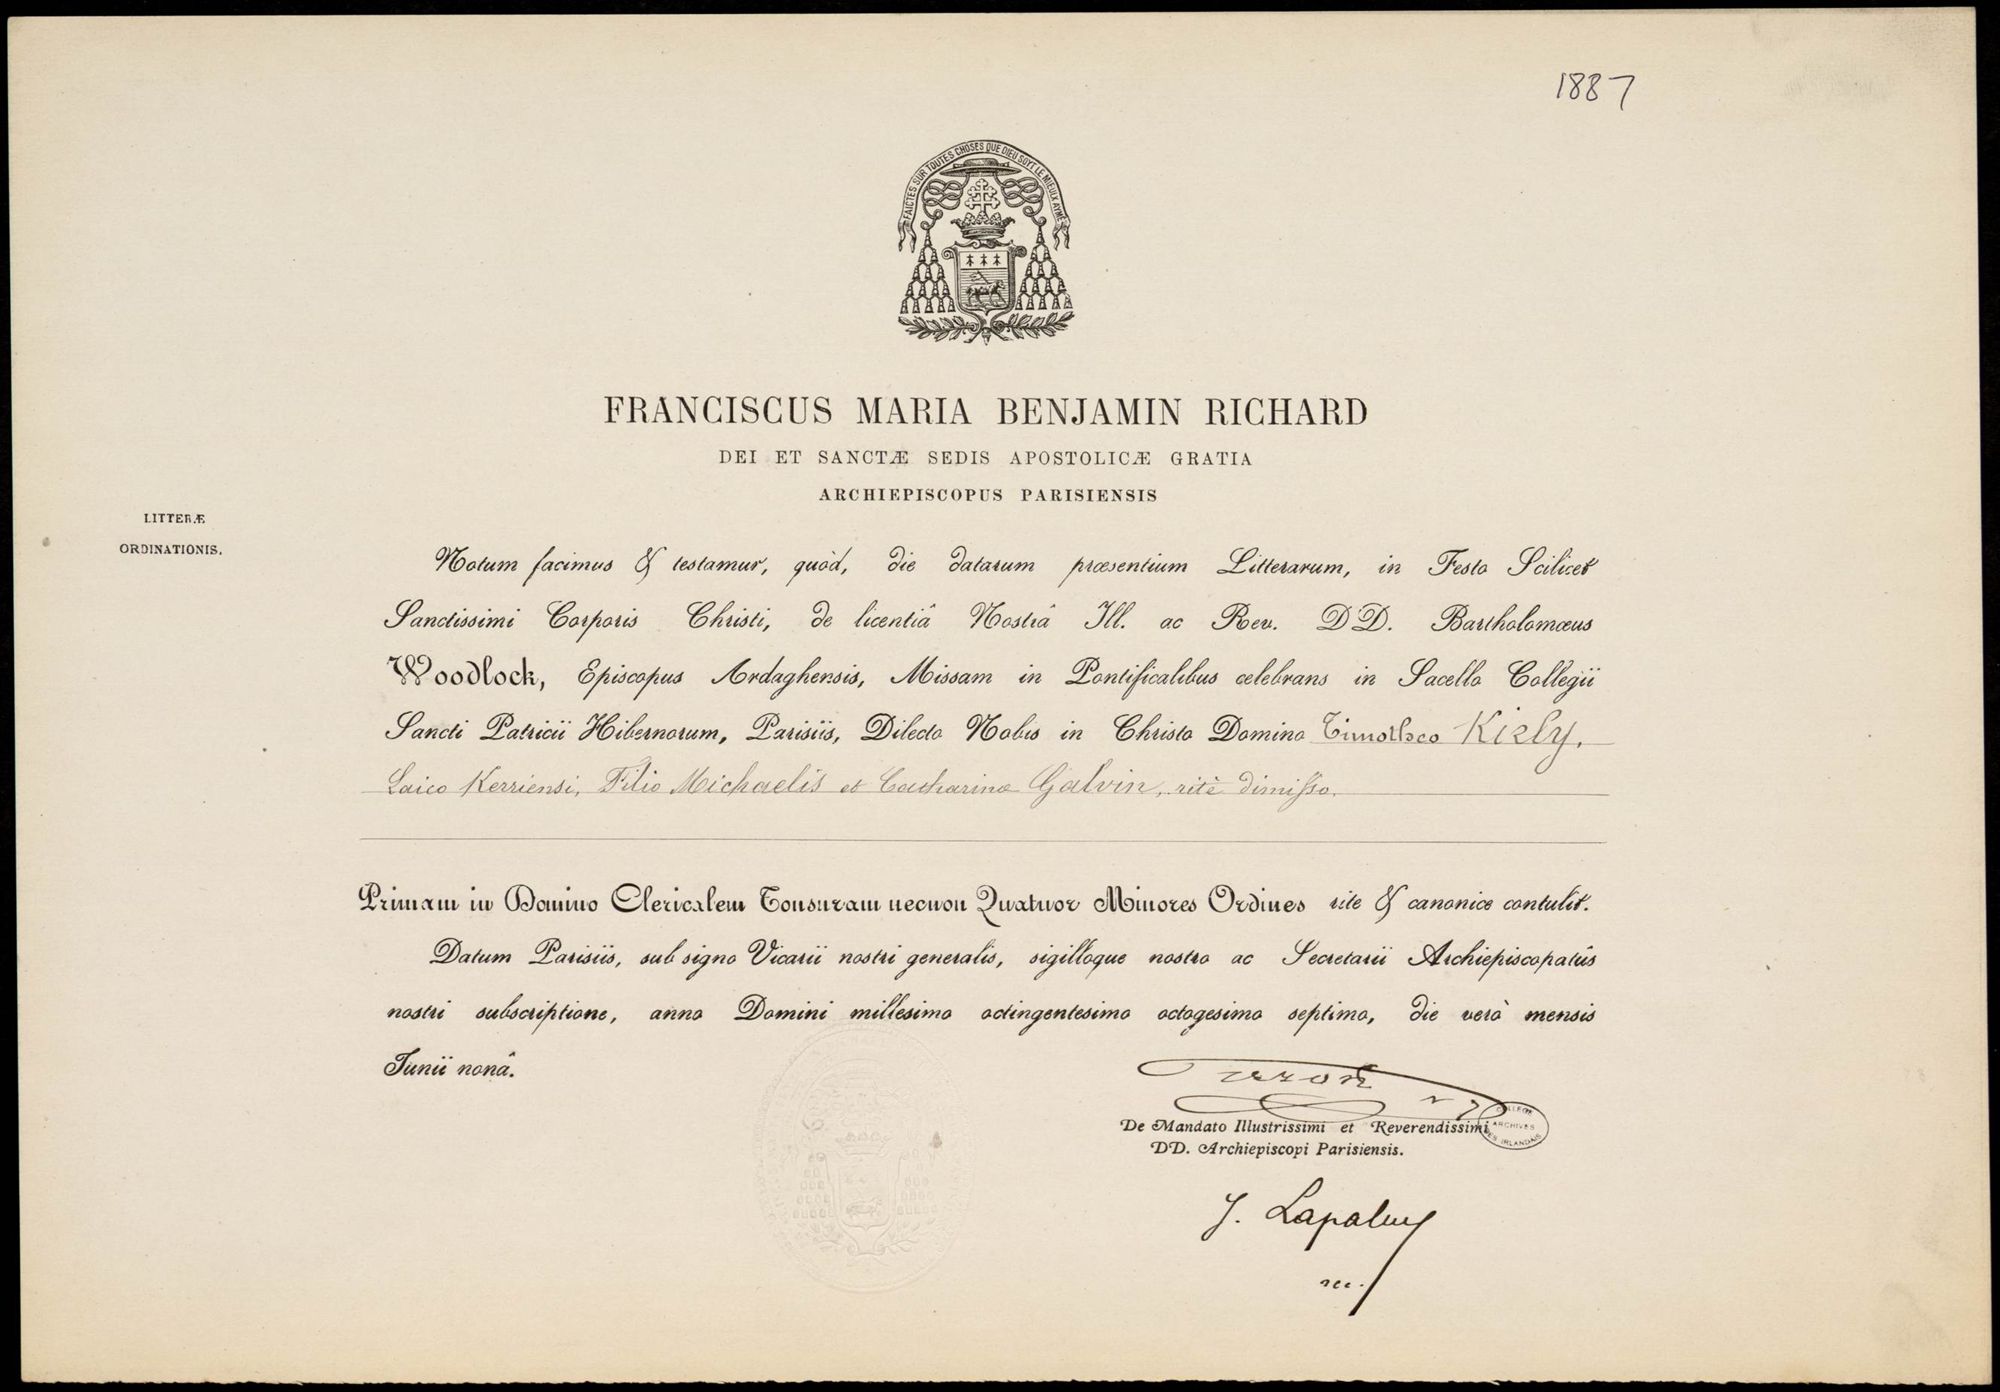 1887
FAICTES SUR TOUTES CHOSES QUE DIEU SOYT LE MIEULX AYMÉ
FRANCISCUS MARIA BENJAMIN RICHARD
DEI ET SANCTÆ SEDIS APOSTOLICÆ GRATIA
ARCHIEPISCOPUS PARISIENSIS
LITTERÆ
ORDINATIONIS.
Notum facimus & testamur, quòd, die datarum præsentium Litterarum, in Festo Scilicet
Sanctissimi Corporis Christi, de licentiâ Nostrâ Ill. ac Rev. DD. Bartholomæus
Woodlock, Episcopus Ardaghensis, Missam in Pontificalibus celebrans in Sacello Collegii
Sancti Patricii Hibernorum, Parisiis, Dilecto Nobis in Christo Domino Timotheo Kiely,
Laico Kerriensi, Filio Michaelis et Catharinæ Galvin, ritè dimisso.
Primam in Domino Clericalem Tonsuram necnon Quatuor Minores Ordines rite & canonice contulit.
Datum Parisiis, sub signo Vicarii nostri generalis, sigilloque nostro ac Secretarii Archiepiscopatûs
nostri subscriptione, anno Domini millesimo octingentesimo octogesimo septimo, die verò mensis
Junii nonâ.
De Mandato Illustrissimi et Reverendissimi
DD. Archiepiscopi Parisiensis.
COLLEGE
ARCHIVES
DES IRLANDAIS
J.